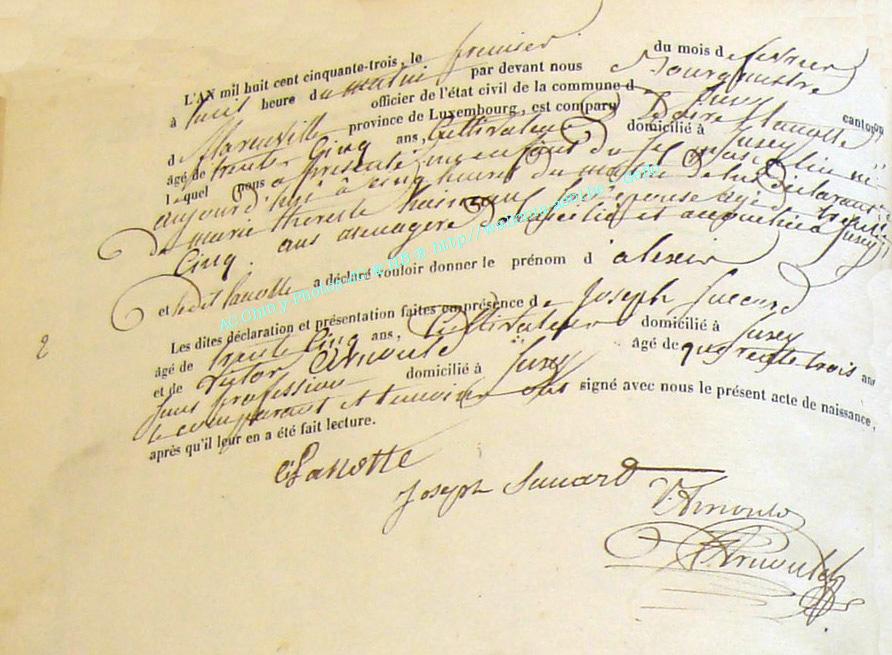 L'AN mil huit cent cinquante-trois, le premier du mois d e fevrier
à huit heure du matin par devant nous Bourgmestre
officier de l'état civil de la commune d e Juzey canton
d province de Luxembourg, est comparu Lanotte
âgé de trente Cinq ans, Cultivateur domicilié à Juzey
lequel nous a présenté un enfant du sexe masculin né
aujourd'hui à cinq heures du matin de lui déclarant
de marie therese son épouse agée de trente
Cinq ans menagère domiciliée à Juzey
et ledit Lanotte a déclaré vouloir donner le prénom d' alexis
Les dites déclaration et présentation faites en présence d e Joseph Suzard
âgé de trente Cinq ans, Cultivateur domicilié à Juzey
et de Victor Arnould âgé de quarante trois ans
sans profession domicilié à Juzey
le comparant et temoins ont signé avec nous le présent acte de naissance,
après qu'il leur en a été fait lecture.
2
Lanotte
Joseph Suzard
V. Arnould
Arnould